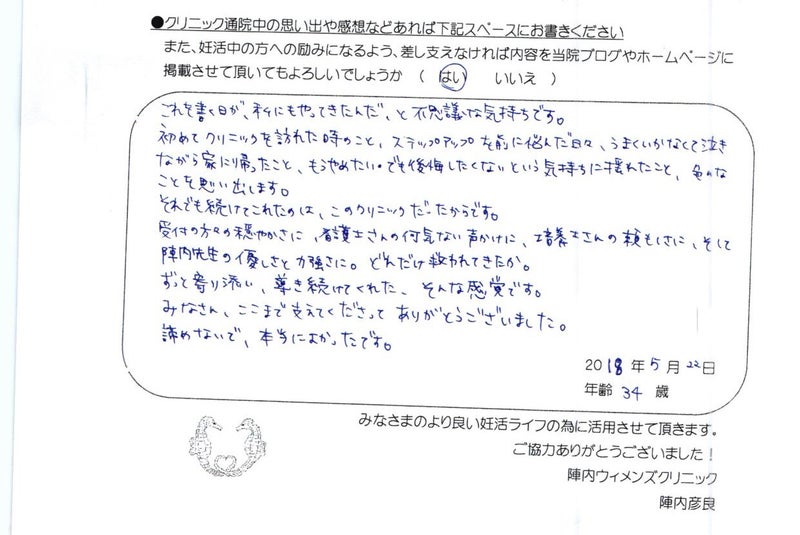 ●クリニック通院中の思い出や感想などあれば下記スペースにお書きください
また、妊活中の方への励みになるよう、差し支えなければ内容を当院ブログやホームページに
掲載させて頂いてもよろしいでしょうか （ はい いいえ ）
これを書く日が、私にもやってきたんだ、と不思議な気持ちです。
初めてクリニックを訪れた時のこと、ステップアップを前に悩んだ日々、うまくいかなくて泣き
ながら家に帰ったこと、もうやめたい。でも後悔したくないという気持ちに揺れたこと、色々な
ことを思い出します。
それでも続けてこれたのは、このクリニックだったからです。
受付の方々の穏やかさに、看護士さんの何気ない声かけに、培養士さんの頼もしさに、そして
陣内先生の優しさと力強さに。どれだけ救われてきたか。
ずっと寄り添い、導き続けてくれた、そんな感覚です。
みなさん、ここまで支えてくださって ありがとうございました。
諦めないで、本当によかったです。
2018 年 5 月 22日
年齢 34 歳
みなさまのより良い妊活ライフの為に活用させて頂きます。
ご協力ありがとうございました！
陣内ウィメンズクリニック
陣内彦良